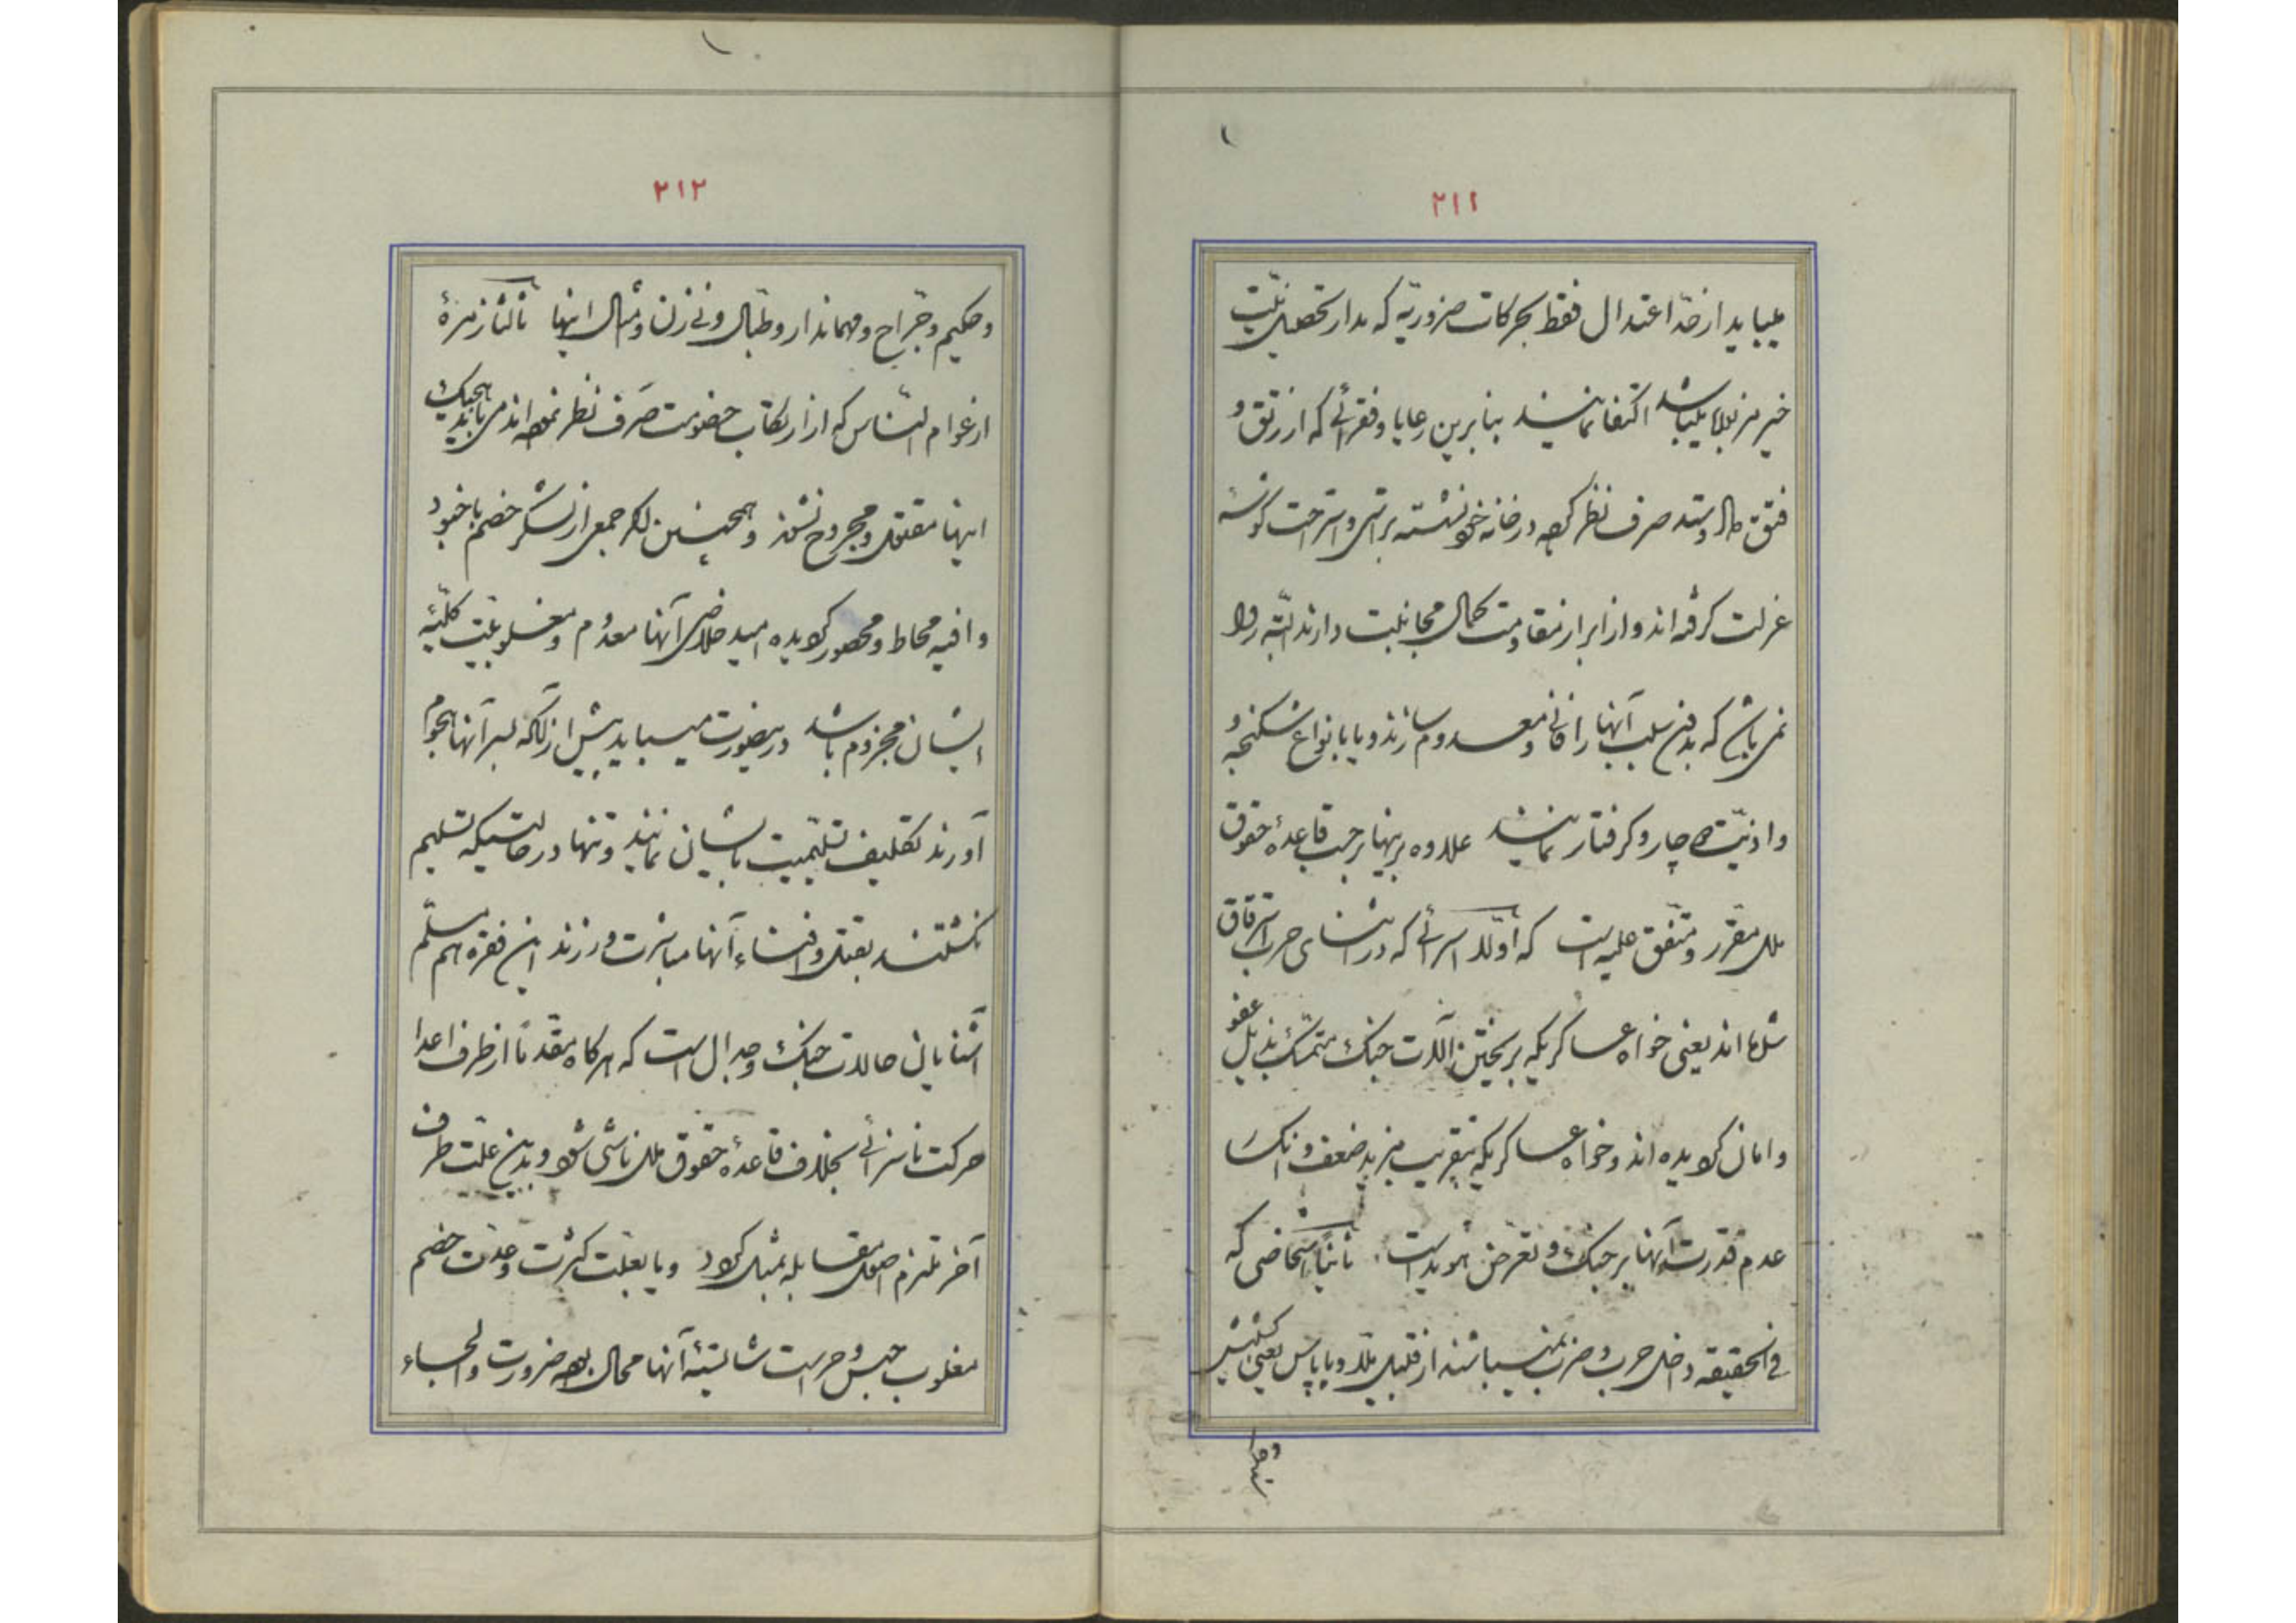 ۲۱۱
میباید از حدّ اعتدال فقط بحرکات ضروریّه که مدار تحصیل نیّت
خیر منزله میباشد اکتفا نمایند بنابرین رعایا و فقرائی که از رتق و
فتق مال و ستد صرف نظر کرده در خانه خود نشسته براستی و استراحت گوشهٔ
عزلت گرفته‌اند و از ابراز مقاومت کمال مجانبت دارند البتّه روا
نمی‌باشد که بدین سلب آنها را فانی و معدوم سازند و یا بانواع شکنجه و
و اذیّت دچار و گرفتار نمایند علاوه برینها برحسب قاعدهٔ حقوق
ملل مقرّر و متّفق علیه است که اوّلا اسرائی که در اثنای حرب استرقاق
شده‌اند یعنی خواه عساکریکه بریختن آلات جنک متمسّک بذیل عفو
و امان گردیده‌اند و خواه عساکریکه بتقریب مزید ضعف و انکسا
عدم قدرت آنها بر جنک و تعرّض هویداست ثانیاً اشخاصی که
فی الحقیقه داخل حرب و ضرب نمیباشند از قبیل ملّا و یا پاپاس یعنی کشیش
۲۱۲
و حکیم و جرّاح و مهماندار و طبّال و نی زن و مثال اینها ثالثا زمرهٔ
از عوام النّاس که از ارتکاب خصومت صرف نظر نموده‌اند می‌باید بجنک
اینها مقتول و مجروح نشوند و همچنین اگر جمعی از لشکر خصم با خود
وافیه محاط و محصور گردیده امید خلاصی آنها معدوم و مغلوبیّت کلّیّه
ایشان مجزوم باشد درینصورت میباید پیش از آنکه بسر آنها هجوم
آورند تکلیف تسلیمیت بایشان نمایند و تنها در حالتیکه تسلیم
نگشتند بقتل و افناء آنها مباشرت ورزند این فقره هم مسلّم
آشنایان حالات جنک و جدال است که هرگاه مقدّماً از طرف اعدا
حرکت ناسزائی بخلاف قاعدهٔ حقوق ملل ناشی شود و بدین علّت طرف
آخر ملتزم اصول مقابله بمثل گردد و یا بعلّت کثرت و عدّت خصم
مغلوب حبس و حراست شایستهٔ آنها محال بوده ضرورت و الجاء